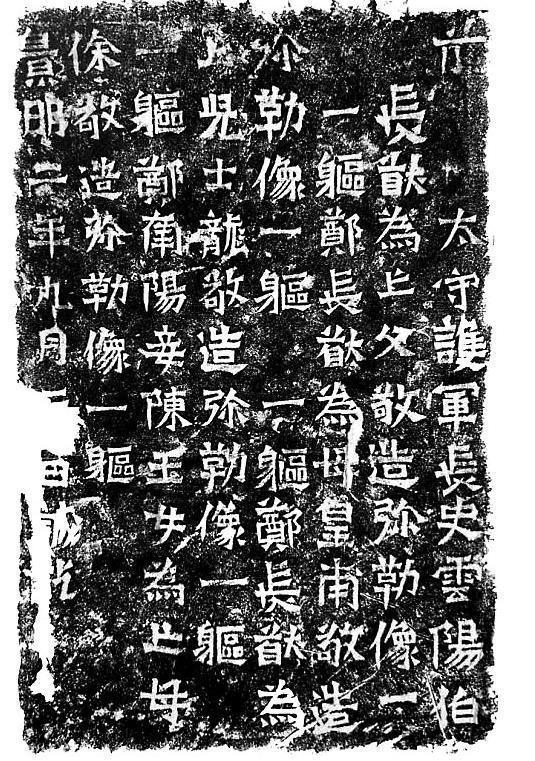 太守護軍長史雲陽伯
長猷為亡父敬造弥勒像一
一軀鄭長猷為母皇甫敬造
弥勒像一軀一軀鄭長猷為
亡児士龍敬造弥勒像一軀
一軀鄭南陽妾陳玉女為亡母
徐敬造弥勒像一軀
景明二年九月日誠訖